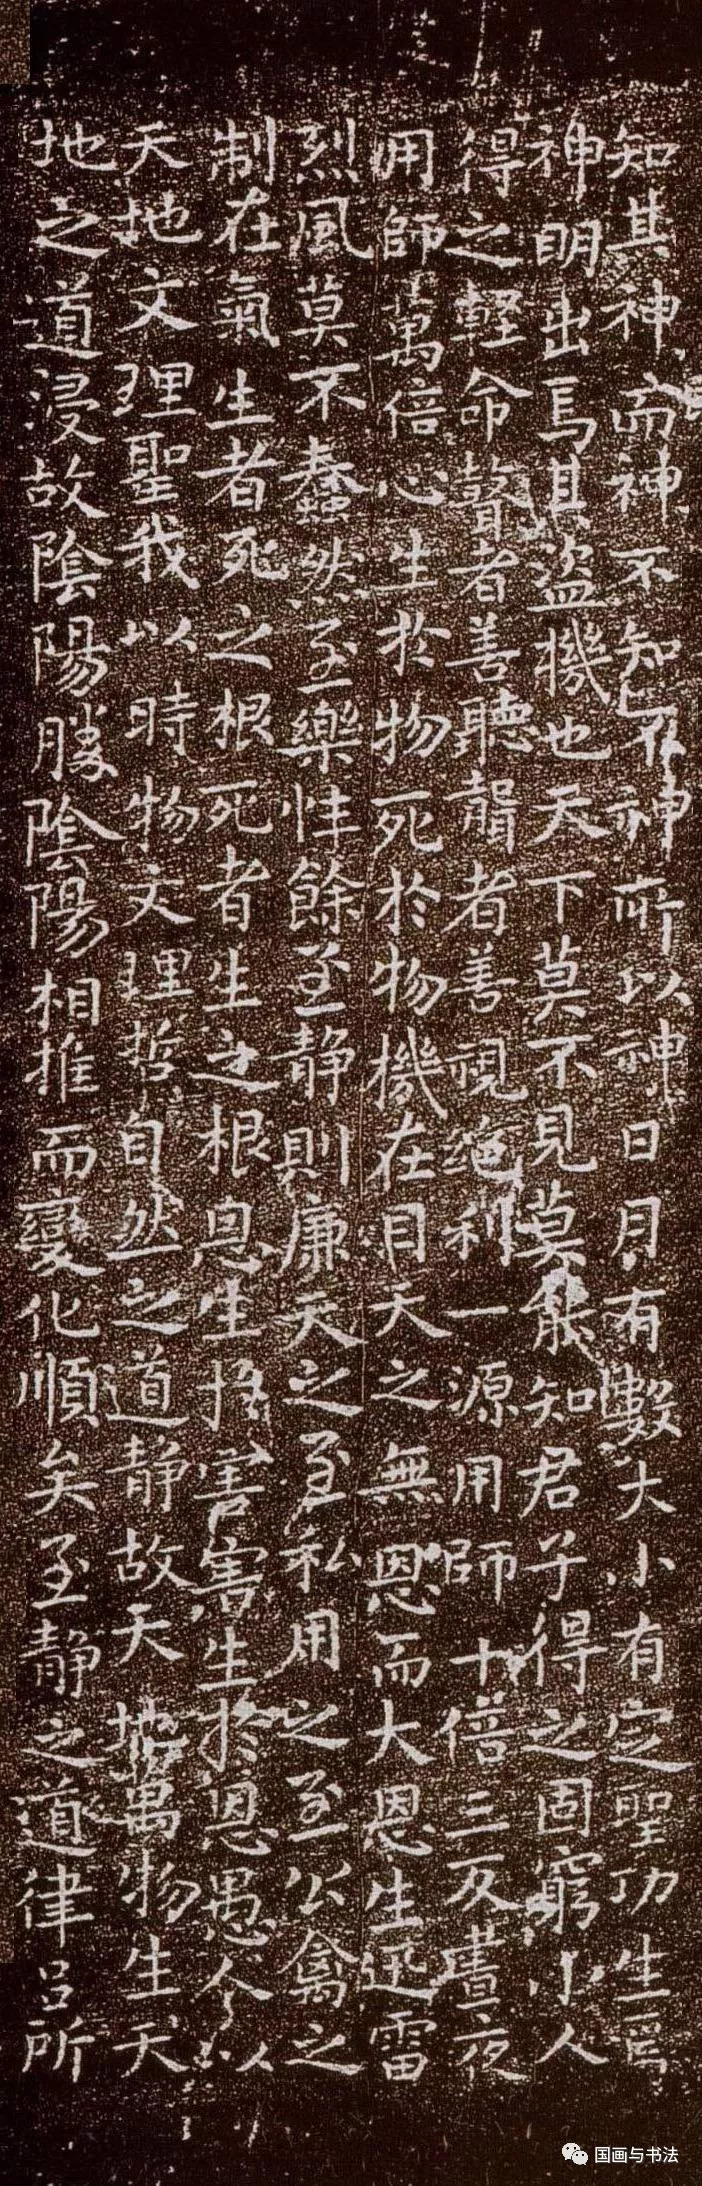 知其神而神不知不神所以神日月有數大小有定聖功生焉
神明出焉其盜機也天下莫不見莫能知君子得之固窮小人
得之輕命瞽者善聽聾者善視絕利一源用師十倍三反晝夜
用師萬倍心生於物死於物機在目天之無恩而大恩生迅雷
烈風莫不蠢然至樂性餘至靜則廉天之至私用之至公禽之
制在氣生者死之根死者生之根恩生於害害生於恩愚人以
天地文理聖我以時物文理哲自然之道靜故天地萬物生天
地之道浸故陰陽勝陰陽相推而變化順矣至靜之道律呂所
国画与书法